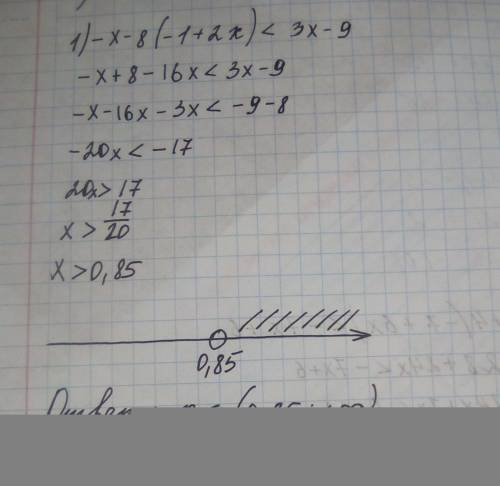 1) -x-8(-1+2x) < 3x-9
-x+8-16x < 3x-9
-x-16x-3x < -9-8
-20x < -17
20x > 17
x > 17/20
x > 0,85
0,85